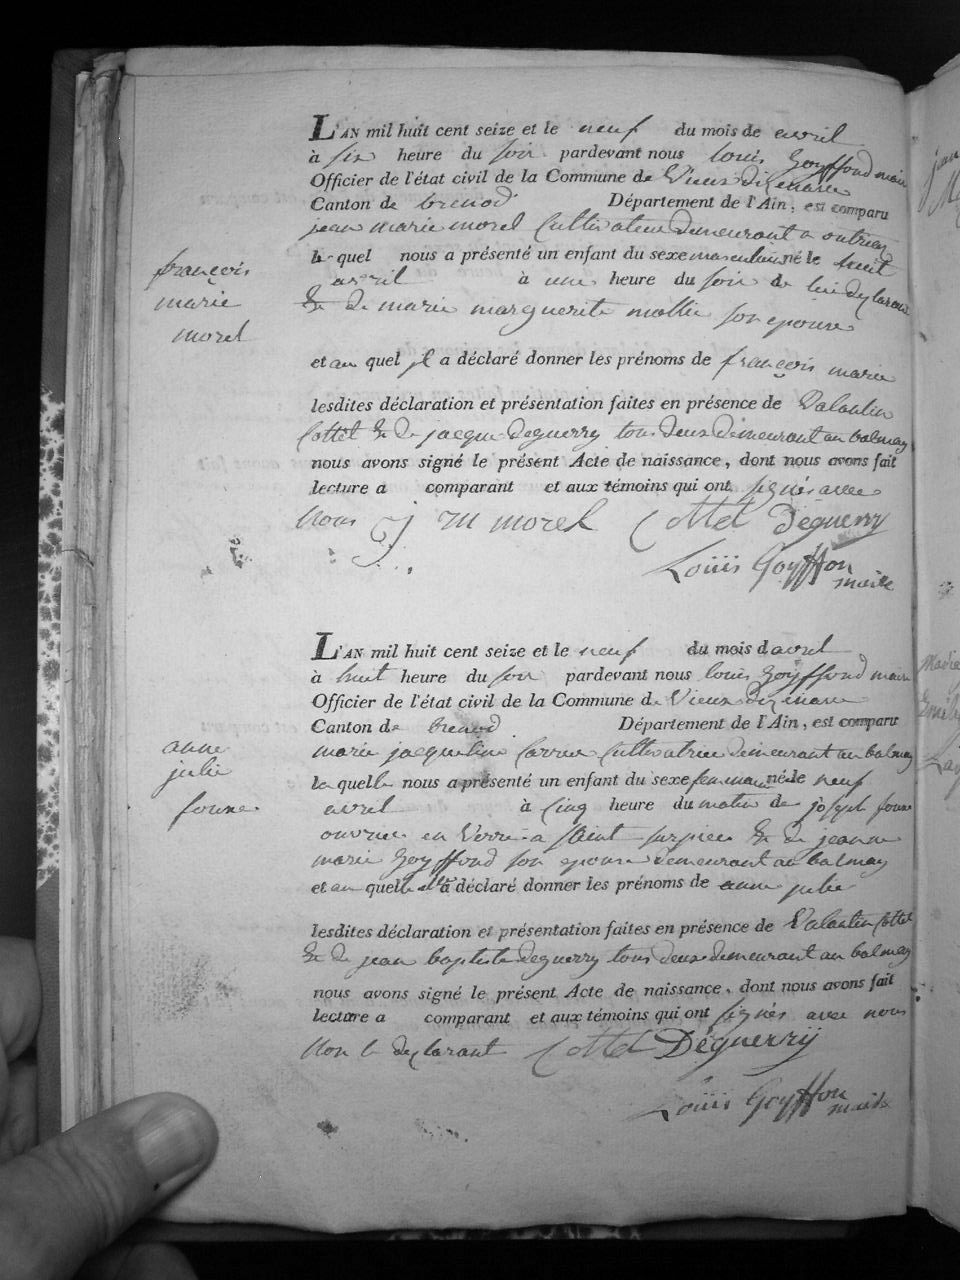 L'AN mil huit cent seize et le neuf du mois de avril
à six heure du soir pardevant nous louis Goyffond maire
Officier de l'état civil de la Commune de Vieux dizenave
Canton de brenod Département de l'Ain, est comparu
jean marie morel Cultivateur demeurant a outriaz
le quel nous a présenté un enfant du sexe masculin né le huit
avril à une heure du soir de lui declarant
& de marie marguerite mollie son epouse
et au quel il a déclaré donner les prénoms de françois marie
lesdites déclaration et présentation faites en présence de Valantin
Cottet & de jacque deguerry tous deux demeurant au balmay
nous avons signé le présent Acte de naissance, dont nous avons fait
lecture a comparant et aux témoins qui ont signés avec
Nous j m morel Cottet Déguerry
Louiis Goyffon
maire
françois
marie
morel
L'AN mil huit cent seize et le neuf du mois d avril
à huit heure du soir pardevant nous louis Goyffond maire
Officier de l'état civil de la Commune de Vieux dizenave
Canton de brenod Département de l'Ain, est comparu
marie jacqueline Carrier Cultivatrice demeurant au balmay
la quelle nous a présenté un enfant du sexe feminin né le neuf
avril à cinq heure du matin de joseph
ouvrier en Verre a saint & de jeanne
marie Goyffond son epouse demeurant au balmay
et au quelle elle a déclaré donner les prénoms de anne julie
lesdites déclaration et présentation faites en présence de Valantin Cottet
& de jean baptiste deguerry tous deux demeurant au balmay
nous avons signé le présent Acte de naissance, dont nous avons fait
lecture a comparant et aux témoins qui ont signés avec nous
Non le declarant Cottet Déguerrÿ
Louiis Goyffon
maire
anne
julie